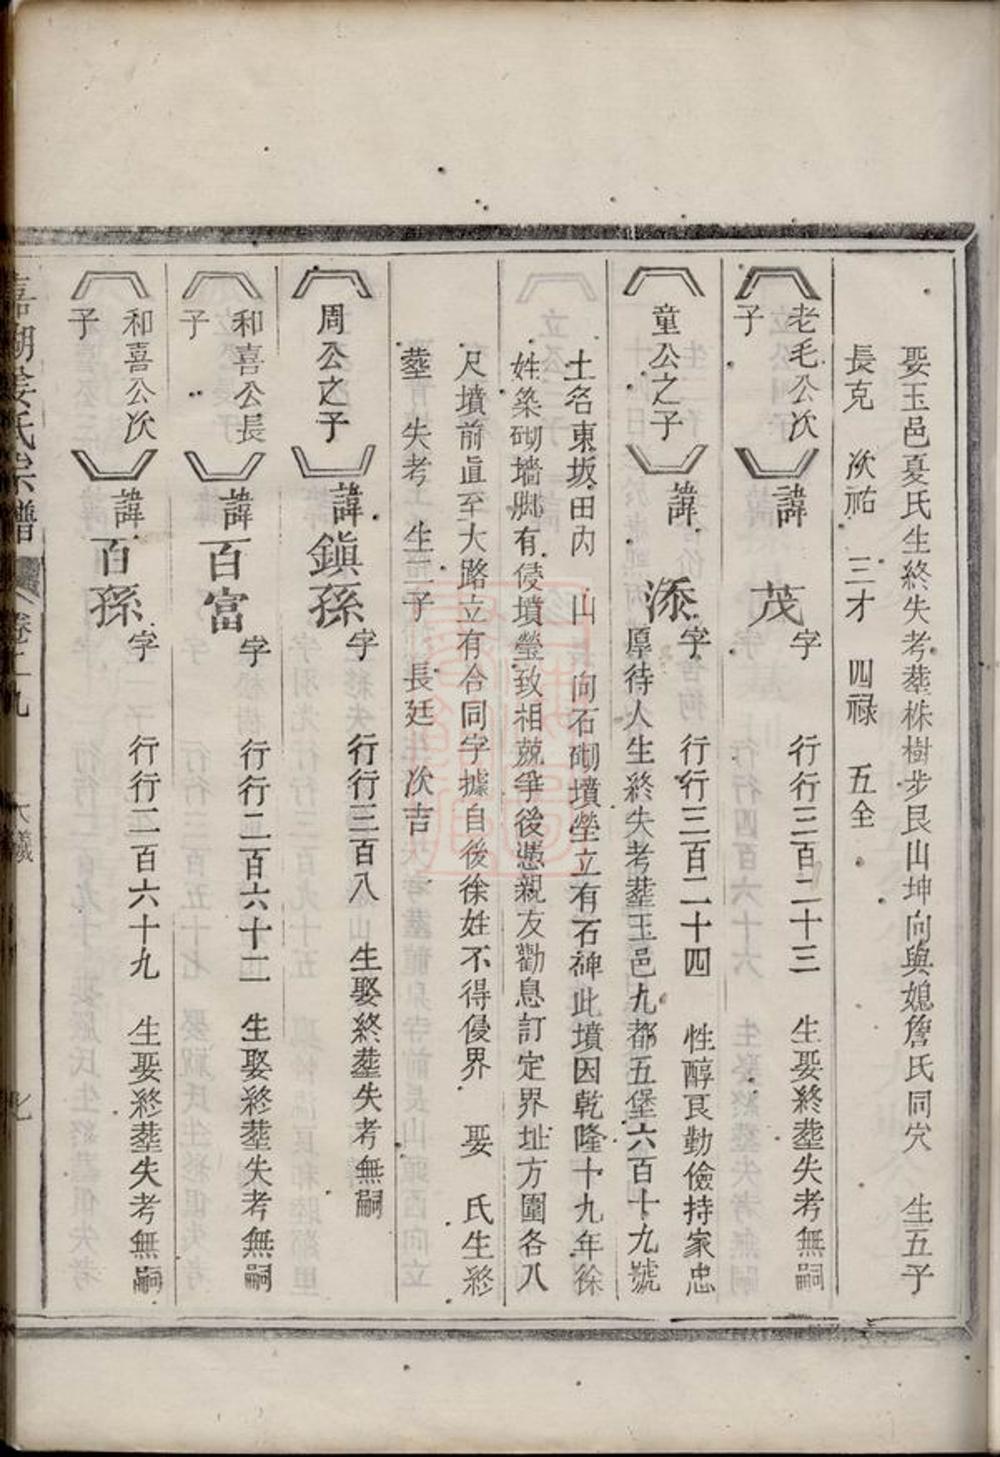 娶玉邑夏氏生終失考塟株樹步艮山坤向與媳詹氏同穴　生五子
長克　次祐　三才　四祿　五全
老毛公次
子
諱茂字　行行三百二十三　生娶終塟失考無嗣
童公之子
諱添字　行行三百二十四　性醇良勤儉持家忠
厚待人生終失考塟玉邑九都五堡六百十九號
土名東坂田內　山　向石砌墳塋立有石碑此墳因乾隆十九年徐
姓築砌墻脚有侵墳塋致相兢爭後憑親友勸息訂定界址方圍各八
尺墳前直至大路立有合同字據自後徐姓不得侵界　娶　氏生終
塟　失考　生二子　長廷　次吉
周公之子
諱鎭孫字　行行三百八　生娶終塟失考無嗣
和喜公長
子
諱百富字　行行二百六十二　生娶終塟失考無嗣
和喜公次
子
諱百孫字　行行二百六十九　生娶終塟失考無嗣
氏宗譜